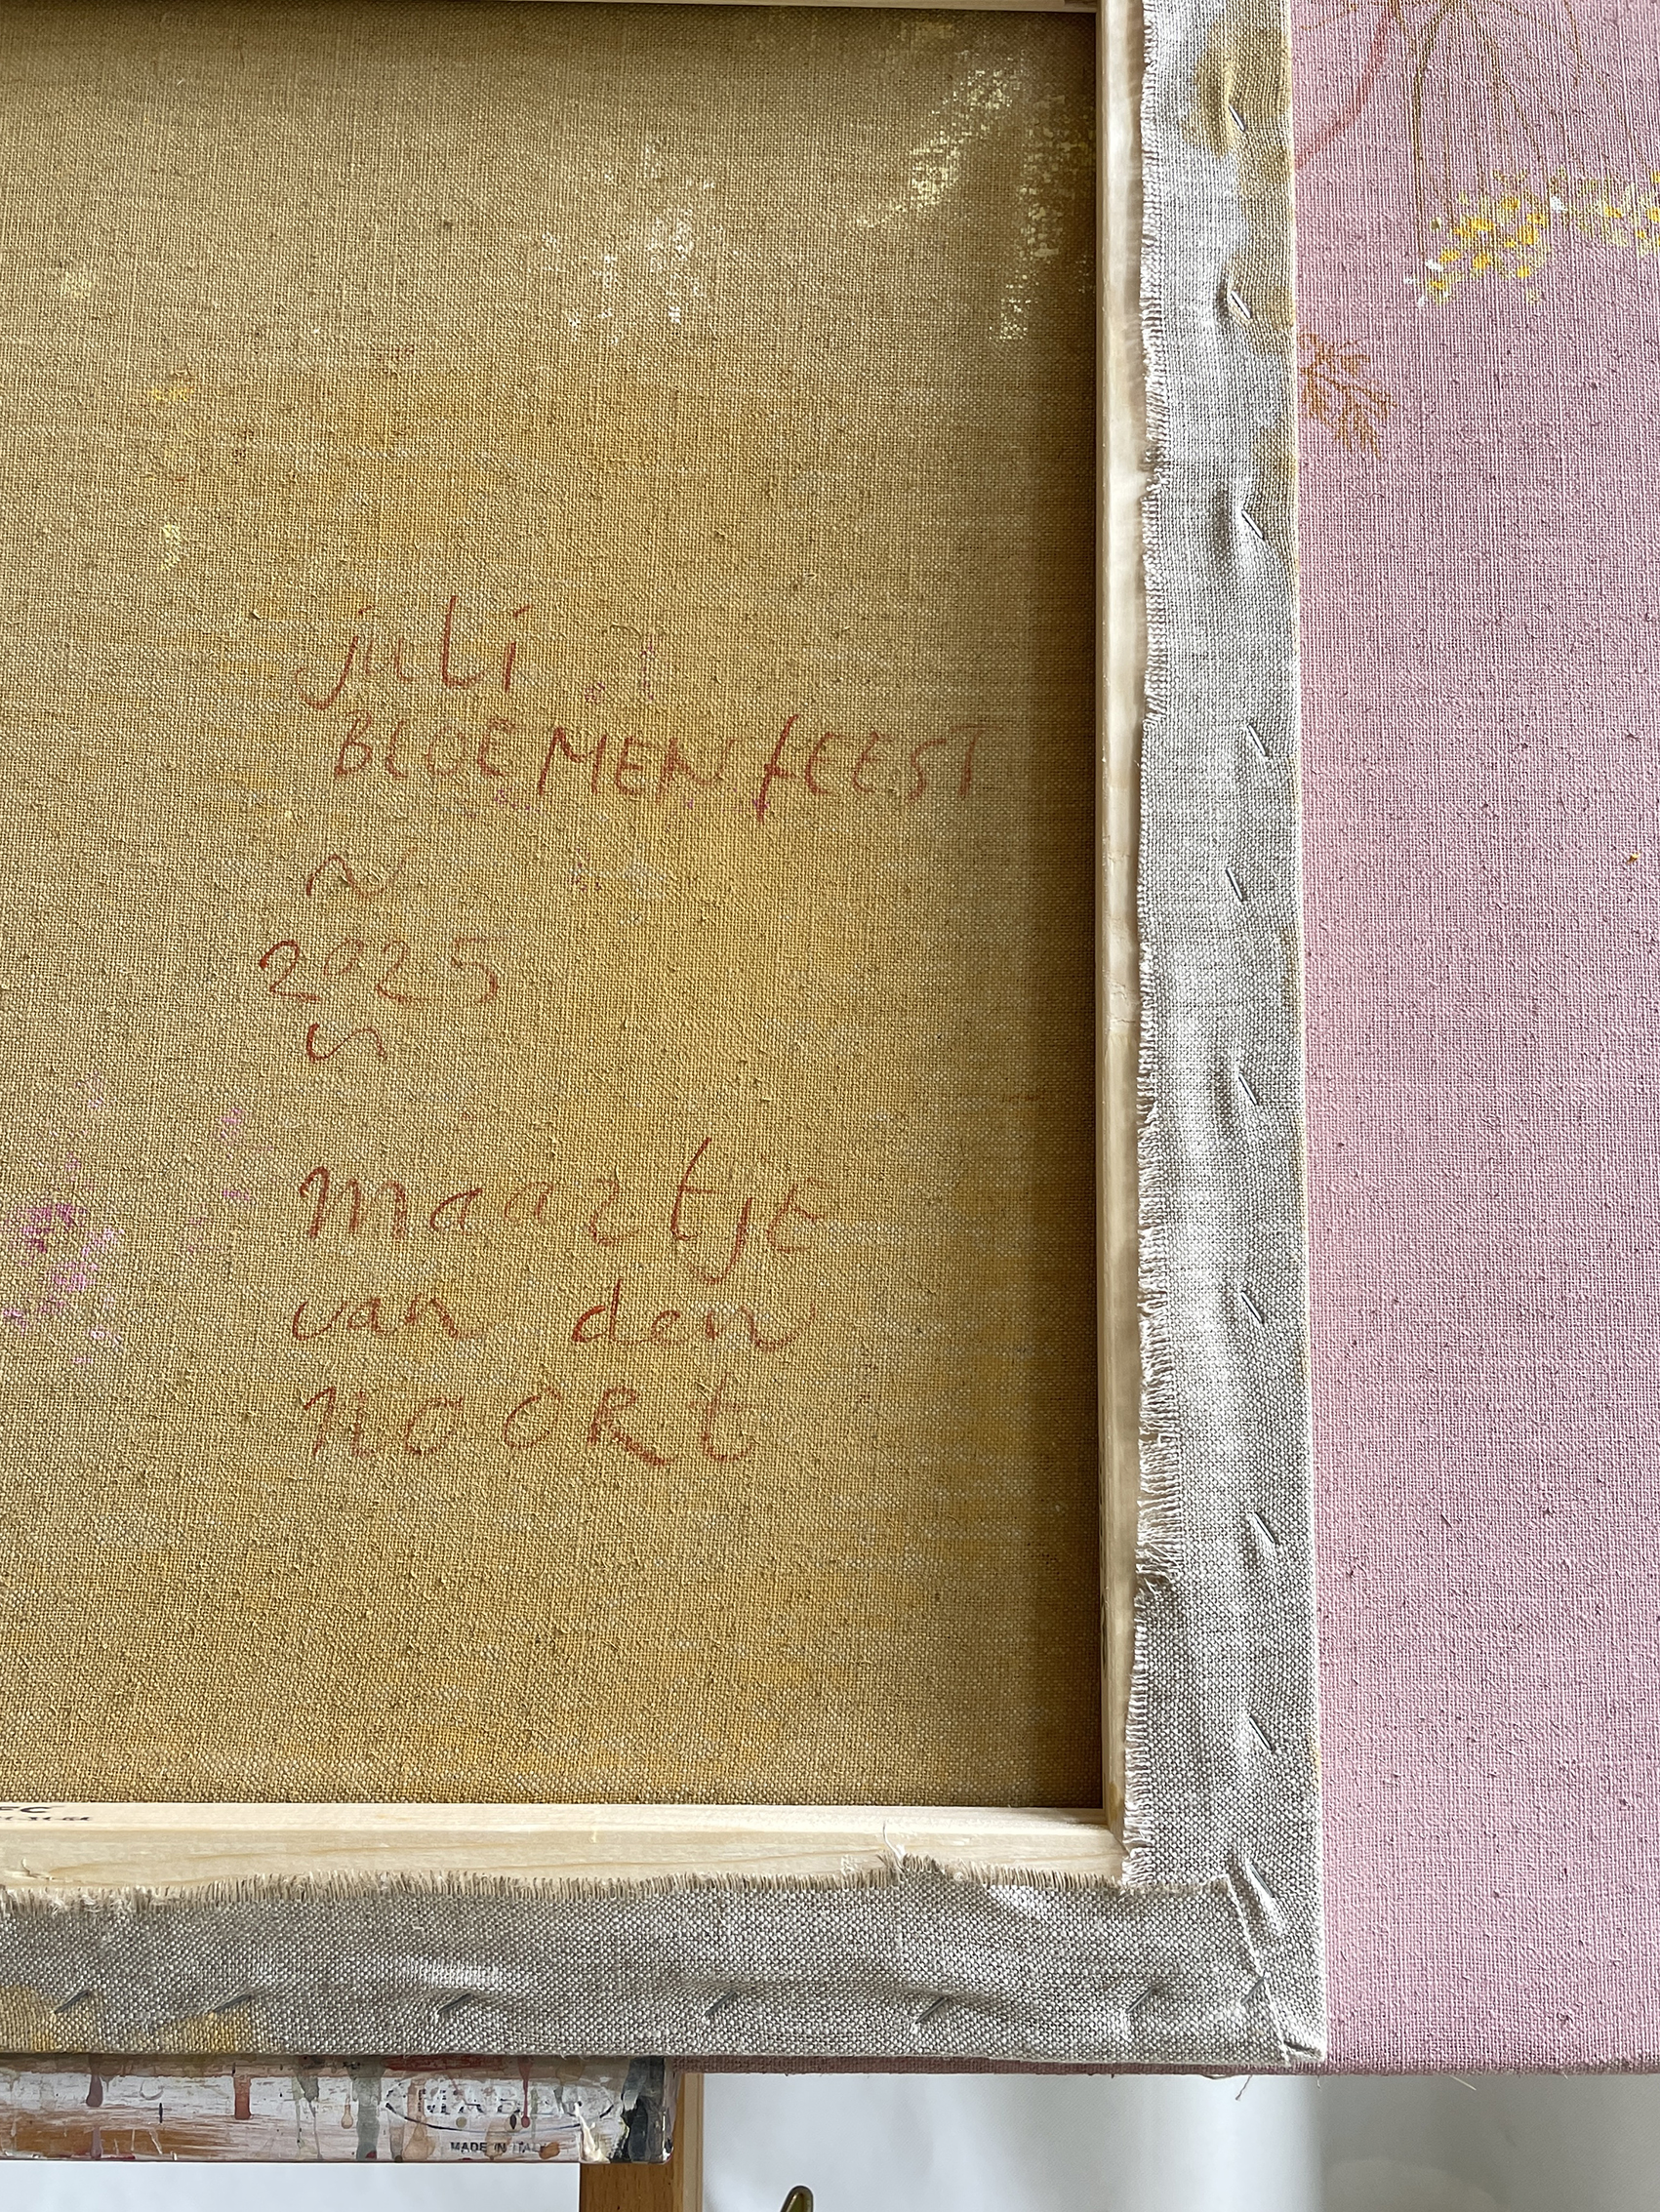 juli
BLOEMENfEEST
~
2025
~
maartje
van den
nOORt
MABEF
MADE IN ITALY